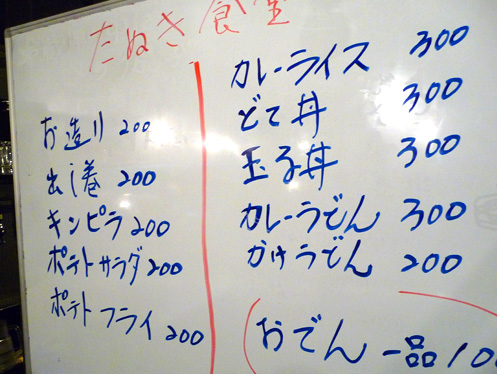 たぬき食堂
お造り 200
出し巻 200
キンピラ 200
ポテトサラダ 200
ポテトフライ 200
カレーライス 300
どて丼 300
玉子丼 300
カレーうどん 300
かけうどん 200
おでん 一品10